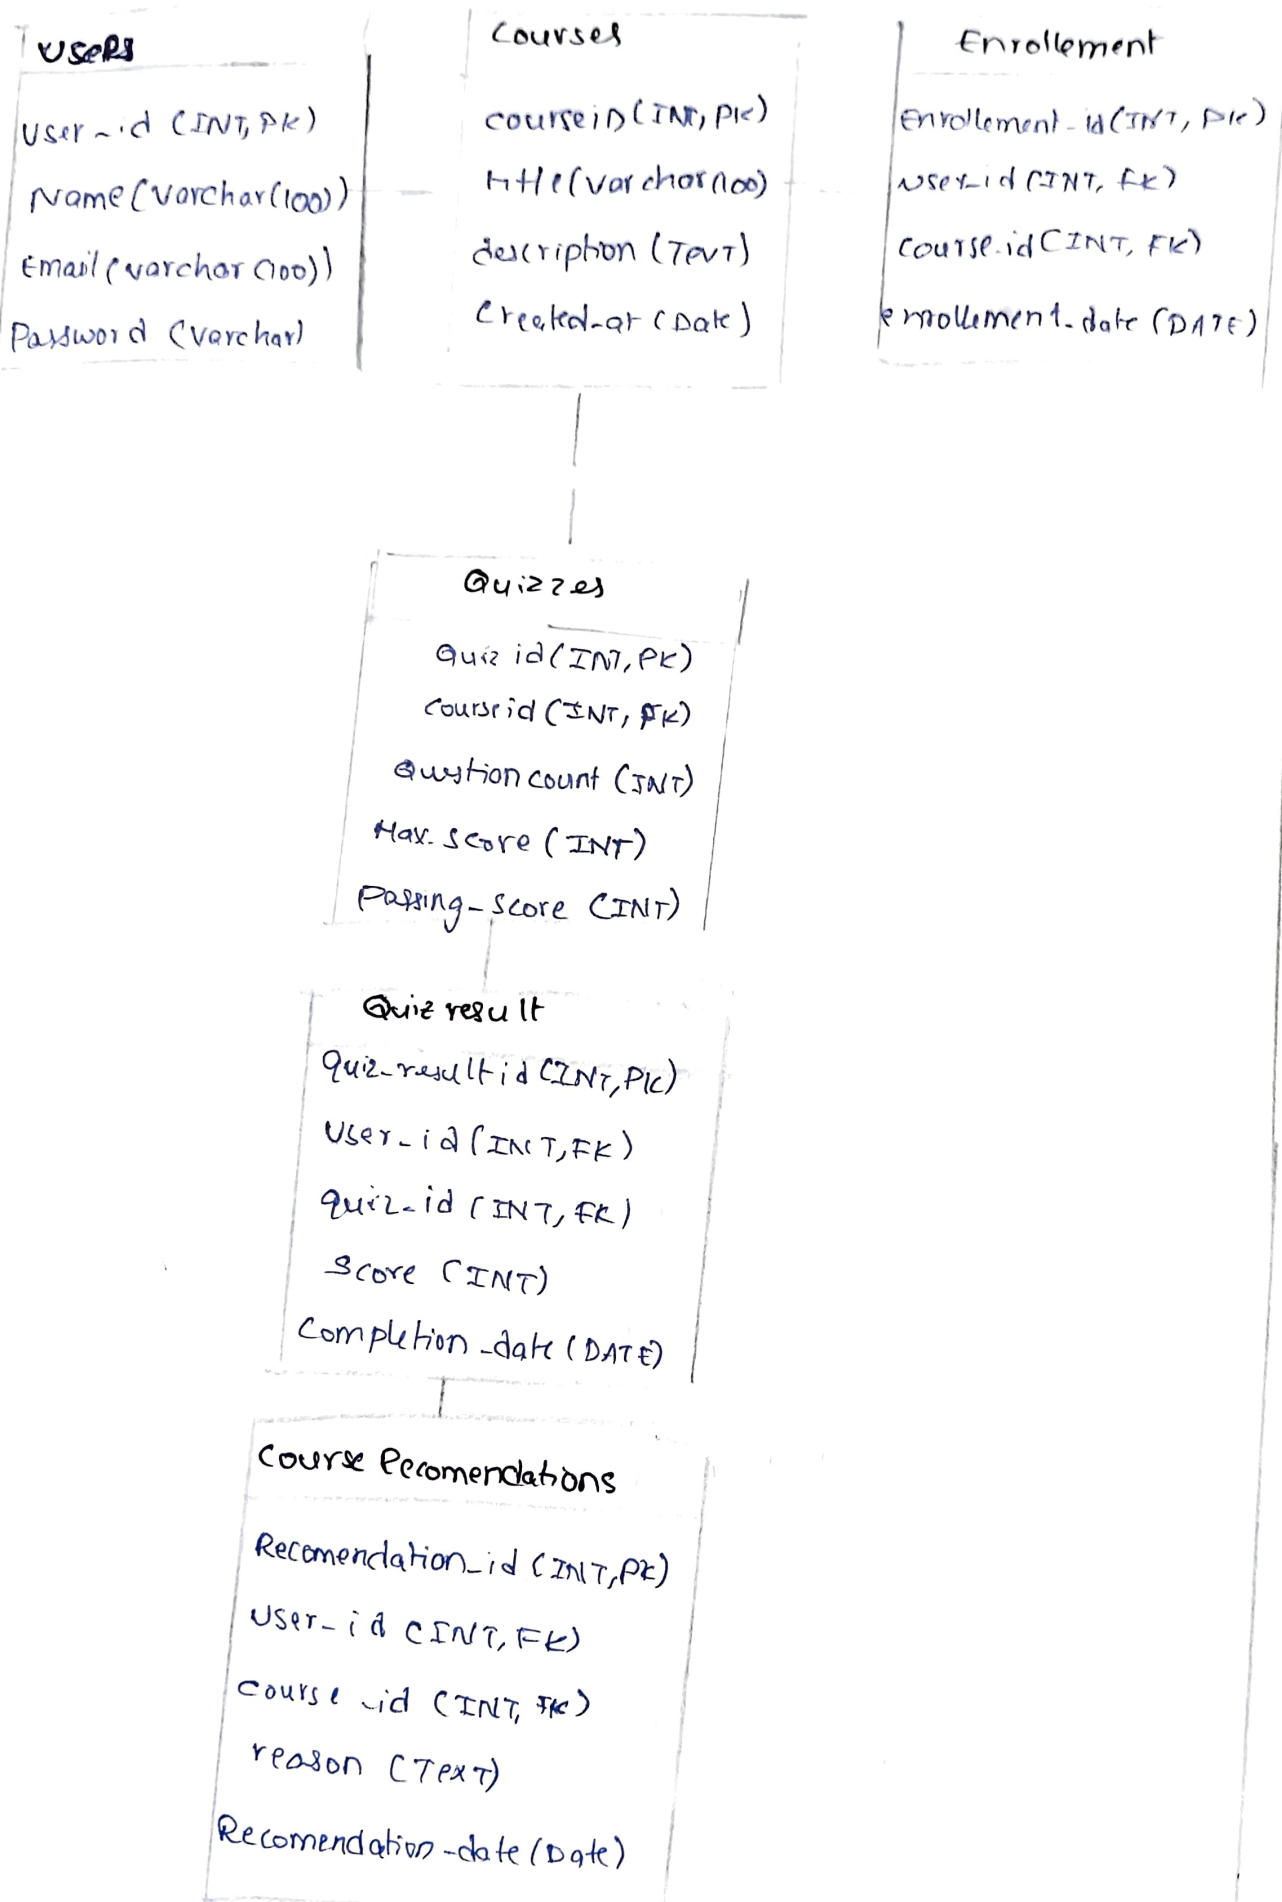 Users
User_id (INT, PK)
Name (Varchar(100))
Email (varchar(100))
Password (Varchar)
Courses
courseiD (INT, PK)
title (varchar(100)
description (TexT)
Created_at (Date)
Enrollement
Enrollement_id (INT, PK)
user_id (INT, FK)
course_id (INT, FK)
enrollement_date (DATE)
Quizzes
Quiz id (INT, PK)
Course id (INT, FK)
Question count (INT)
Max_score (INT)
Passing_score (INT)
Quiz result
quiz_result id (INT, PK)
User_id (INT, FK)
quiz_id (INT, FK)
Score (INT)
Completion_date (DATE)
Course Recomendations
Recomendation_id (INT, PK)
User_id (INT, FK)
course_id (INT, FK)
reason (TexT)
Recomendation_date (Date)